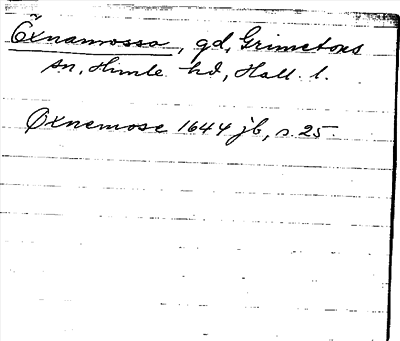 Öxnamossa, gd, Grimetons
sn, Himle hd, Hall. l.
Øxnemose 1644 jb, s. 25.